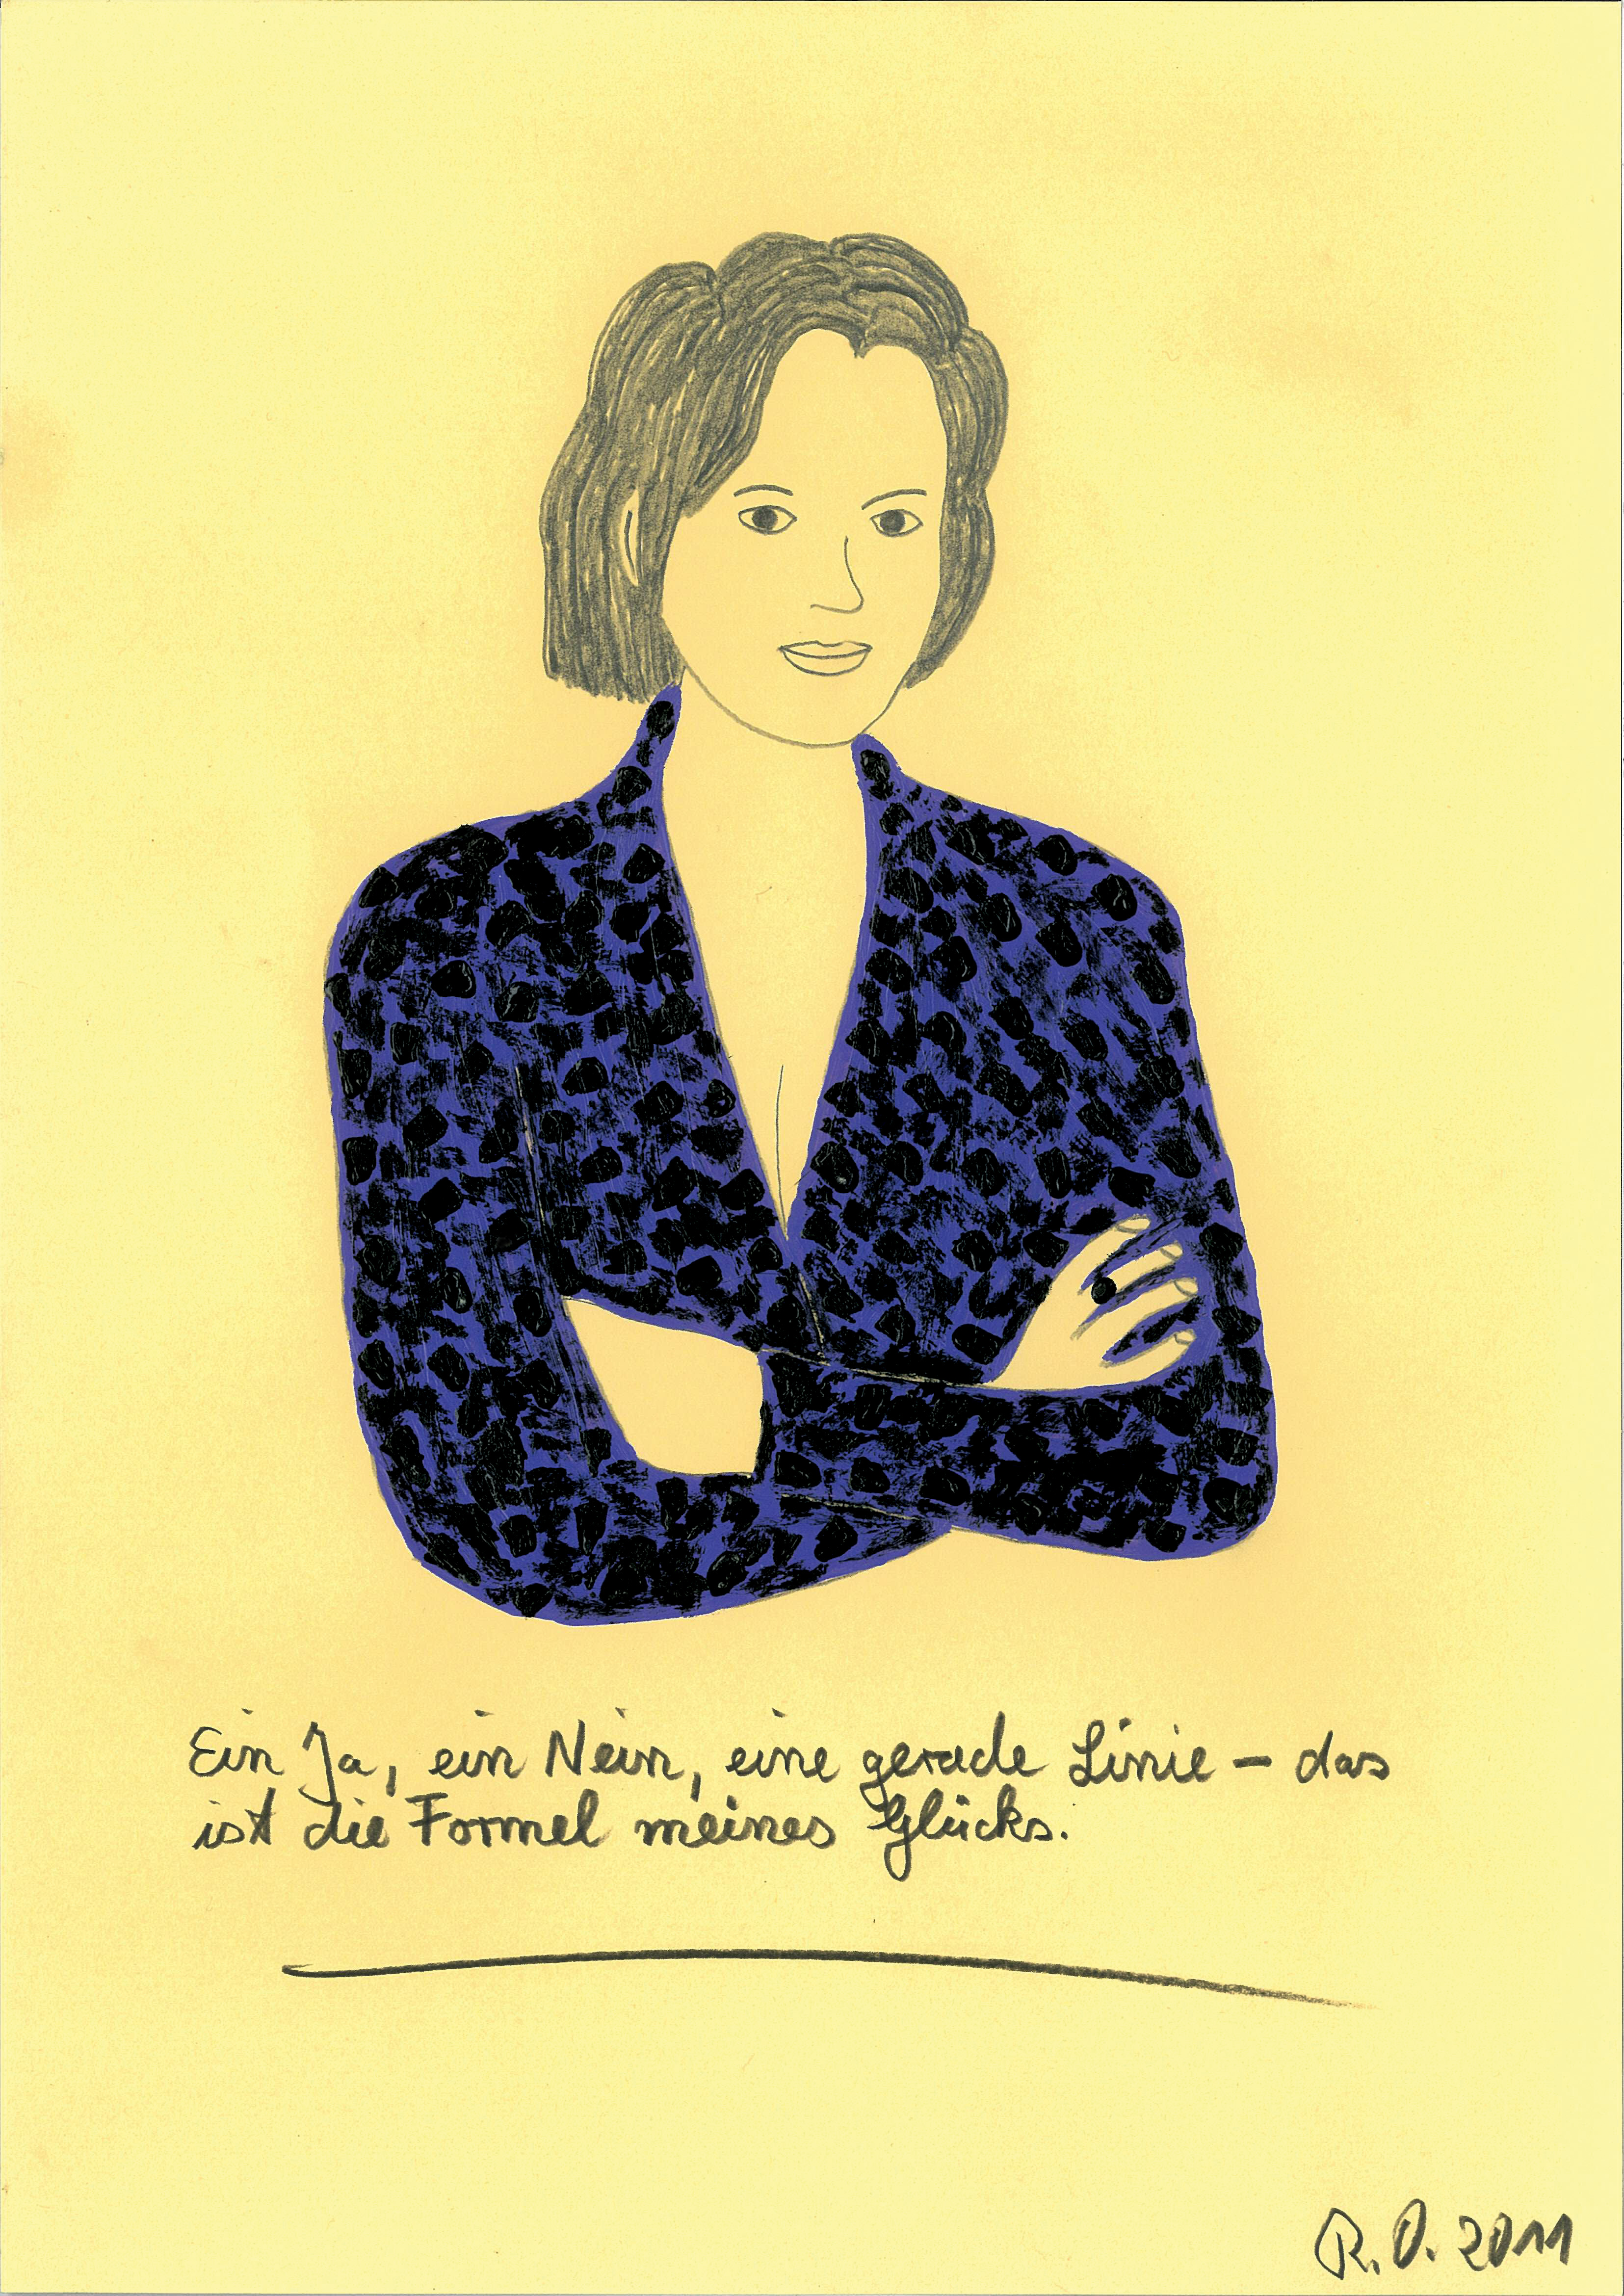 Ein Ja, ein Nein, eine gerade Linie – das
ist die Formel meines Glücks.
R.O. 2011